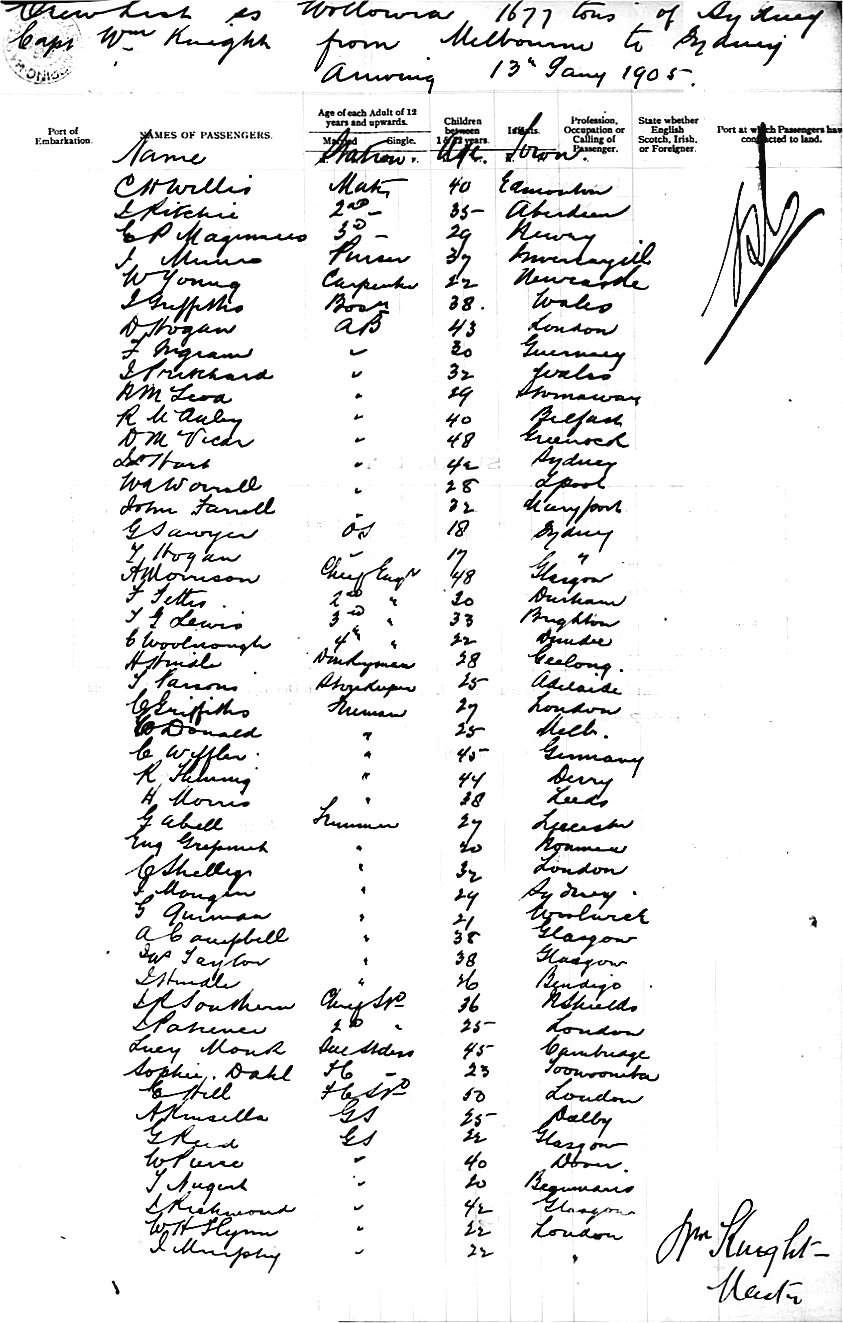 Crew List ss Wollowra 1677 tons of Sydney
Capt Wm Knight from Melbourne to Sydney
Arriving 13th Jany 1905.
Port of Embarkation. NAMES OF PASSENGERS. Age of each Adult of 12 years and upwards. Married Single. Children between 1 & 12 years. Infants. Profession, Occupation or Calling of Passenger. State whether English Scotch, Irish, or Foreigner. Port at which Passengers have contracted to land.
Name Station. Age. Town.
C H Willis Mate 40 Edmonton
J Ritchie 2nd - 35 Aberdeen
E P Maginness 3d - 29 Newry
J Munro Purser 37 Invercargill
W Young Carpenter 22 Newcastle
J Griffiths Bosn 38. Wales
D Hogan AB 43 London
F Ingram " 30 Guernsey
J Pritchard " 32 Wales
McLeod " 29 Stornaway
R McAuley " 40 Belfast
D McVicar " 48 Greenock
Hart " 42 Sydney
Wm Worrall " 28 Lpool
John Farrell " 22 Maryport
G Sawyer OS 18 Sydney
T Hogan " 17 "
A Morrison Chief Engr 48 Glasgow
F Fettes 2nd " 30 Durham
T G Lewis 3rd " 33 Brighton
C Woolnough 4th " 22 Dundee
H Hindle Donkeyman 28 Geelong.
T Parsons Storekeeper 25 Adelaide
C Griffiths Fireman 27 London
Donald " 25 Melb.
C Wiffler. " 45 Germany
R Fleming " 44 Derry
H Morris " 38 Leeds
G Abell Trimmer 27 Leicester
Eug " 20 Noumea
C " 32 London
J Mongan " 29 Sydney.
G " 21 Woolwich
A Campbell " 38 Glasgow
Jas Taylor " 38 Glasgow
J Hindle " 26 Bendigo
J R Southern Chief Std 36 N Shields
J Patience 2nd " 25 London
Lucy Monk Sal Stdess 45 Cambridge
Sophie Dahl FC - 23 Toowoomba
C Hill FC Std 50 London
A Kinsella GS 25 Dalby
G Reed GS 22 Glasgow
W Pierse " 40 Dover.
T August " 20
J Richmond " 42 Glasgow
W H Flynn " 22 London
J Murphy " 22 "
Wm Knight
Master